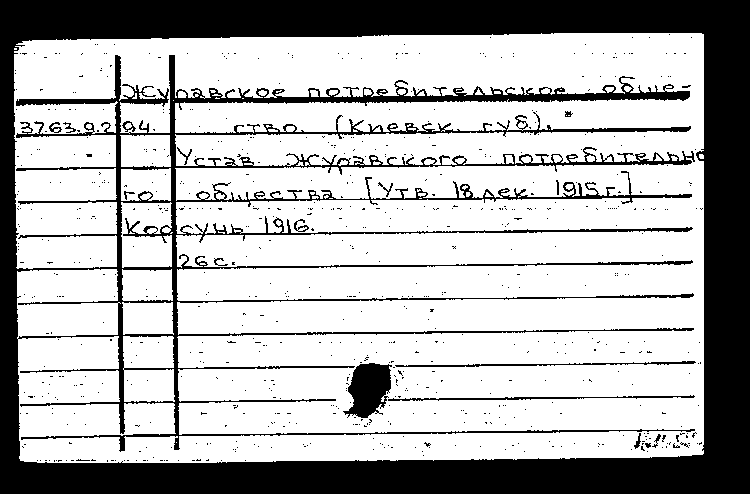 Журавское потребительское обще-
37.63.9.2 94. ство. (Киевск. губ).
Устав Журавского потребительно
го общества. [Утв. 18 дек. 1915 г.].
Корсунь, 1916.
26 с.